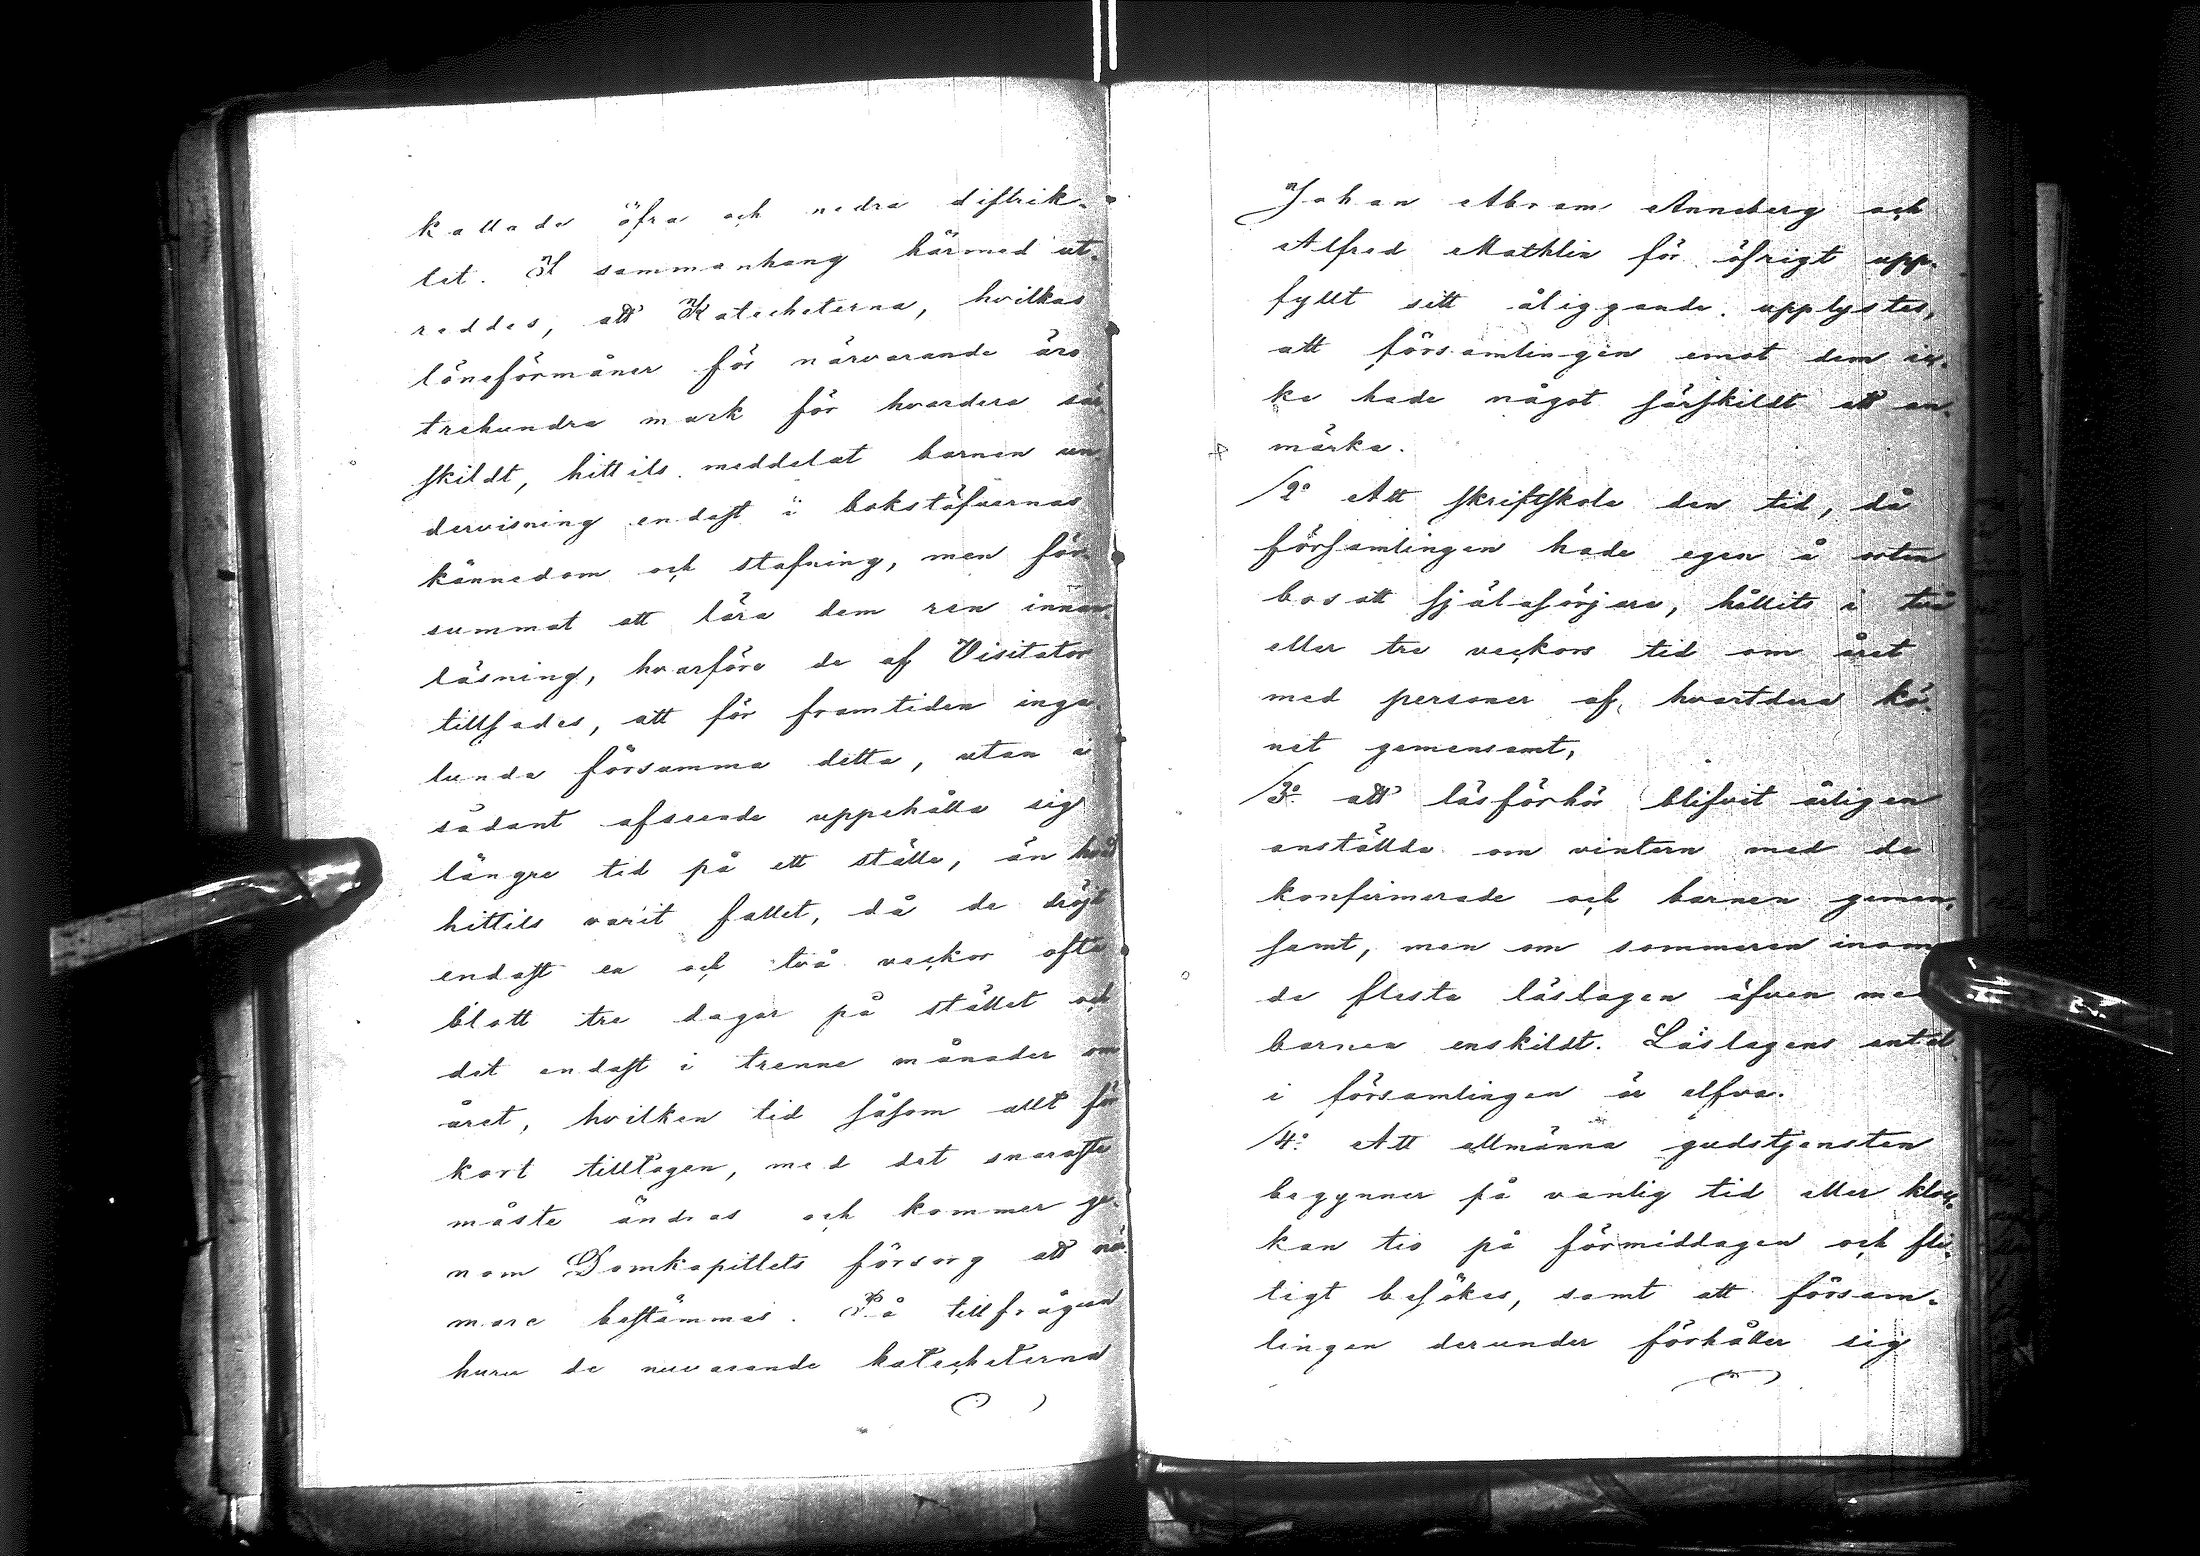 kallade öfra och nedra distrik-
tet. I sammanhang härmed ut-
reddes, att Katecheterna, hvilkas
löneförmåner för närvarande äro
trehundra mark för hvardera sär-
skildt, hittils meddelat barnen un-
dervisning endast i bokstäfvernas
kännedom och stafning, men för-
summat att lära dem ren innan-
läsning, hvarföre de af Visitator
tillsades, att för framtiden inga-
lunda försumma detta, utan i
sådant afseende uppehålla sig
längre tid på ett ställe, än hvad
hittils varit fallet, då de dröjt
endast en och två veckor ofta
blott tre dagar på stället och
det endast i trenne månader om
året, hvilken tid såsom allt för
kort tilltagen, med det snaraste
måste ändras och kommer ge-
nom Domkapitlets försorg att när-
mare bestämmas. På tillfrågan
huru de nuvarande katecheterna
Johan Abram Anneberg och
Alfred Mathlin för öfrigt upp-
fyllt sitt åliggande, upplystes,
att församlingen emot dem ic-
ke hade något särskildt att an-
märka.
/2:o Att skriftskola den tid, då
församlingen hade egen å orten
bosatt själasörjare, hållits i två
eller tre veckors tid om året
med personer af hvartdera kö-
net gemensamt,
/3:o att läsförhör blifvit årligen
anställda om vintern med de
konfirmerade och barnen gemen-
samt, men om sommaren inom
de flesta läslagen äfven med
barnen enskildt. Läslagens antal
i församlingen är elfva.
/4:o Att allmänna gudstjensten
begynner på vanlig tid eller kloc-
kan tio på förmiddagen och fli-
tigt besökes, samt att försam-
lingen derunder förhåller sig